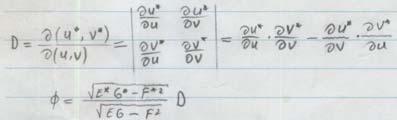 D = ∂(u*, v*)/∂(u,v) = | ∂u*/∂u ∂u*/∂v ; ∂v*/∂u ∂v*/∂v | = ∂u*/∂u · ∂v*/∂v − ∂u*/∂v · ∂v*/∂u
ϕ = √(E* G* − F*²)/√(EG − F²) D